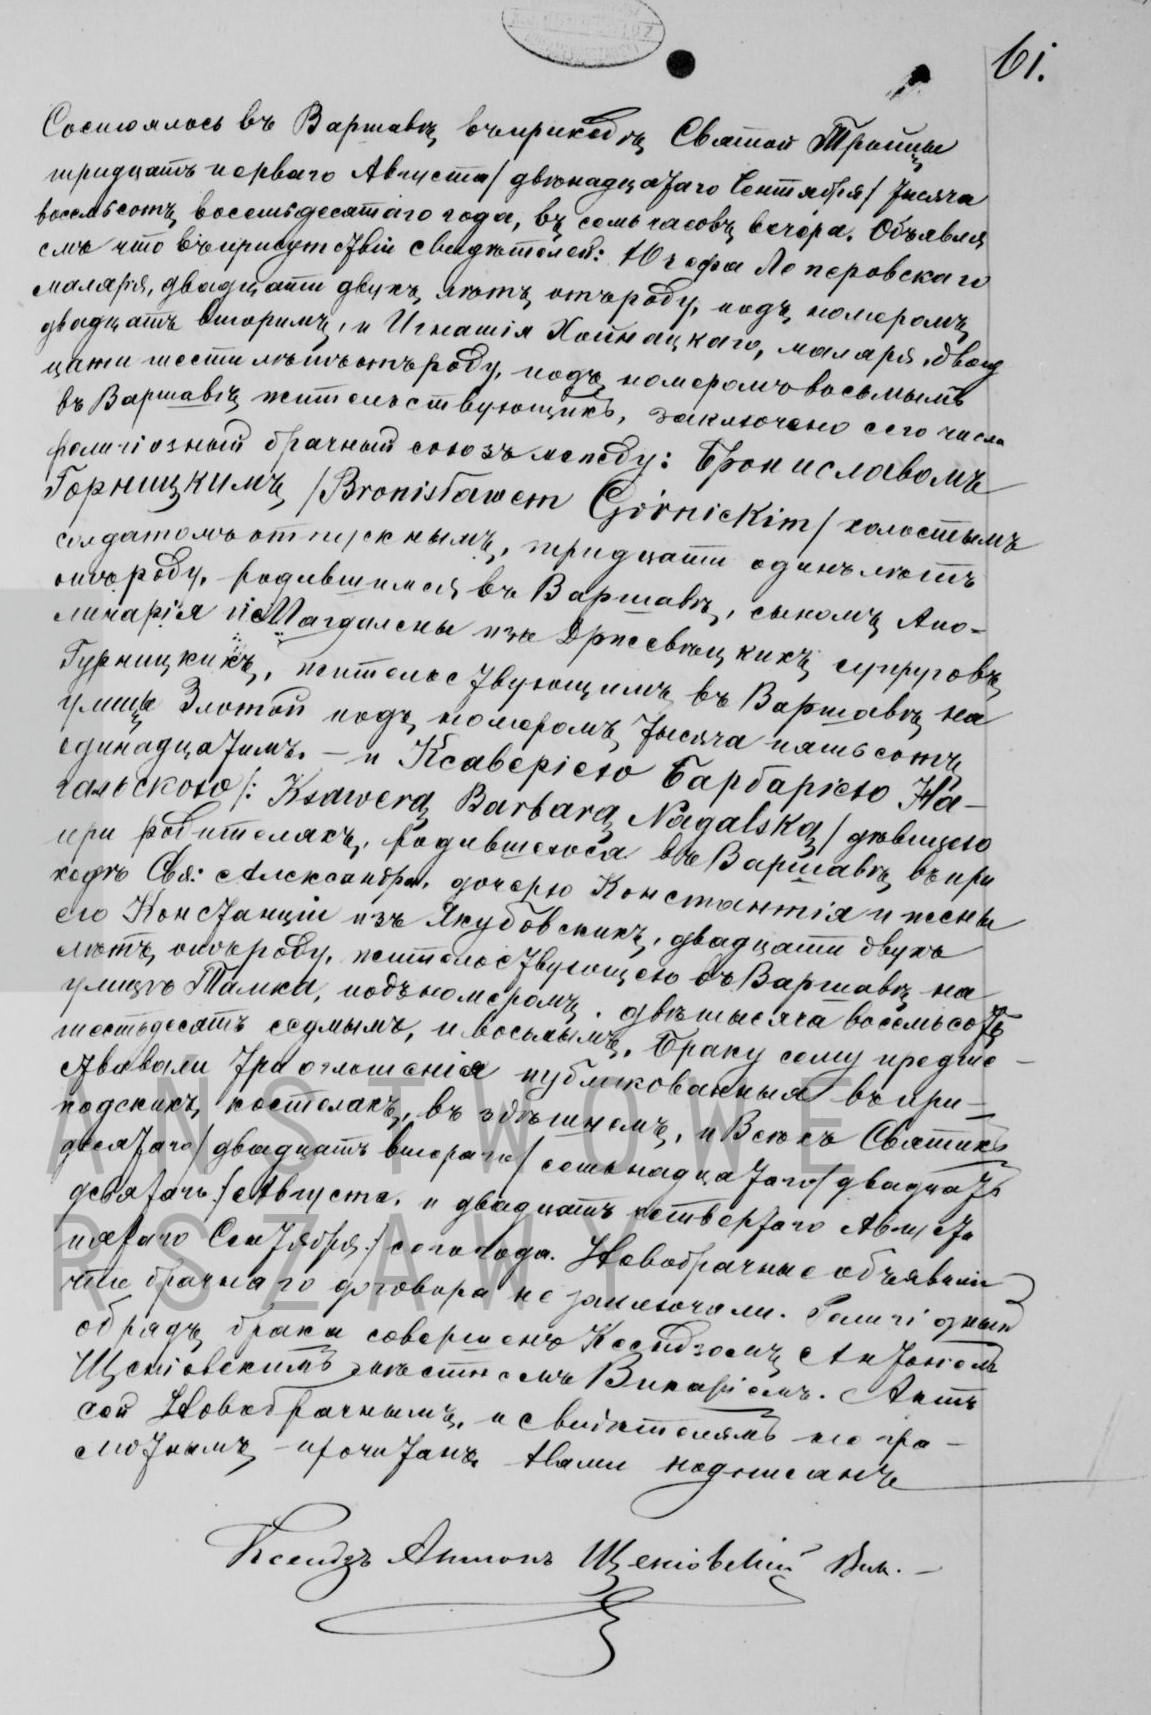 61.
Состоялось въ Варшавѣ въ приходѣ Святой Троицы
тридцать перваго Августа / двѣнадцатаго Сентября / тысяча
восемьсотъ восемьдесятаго года, въ семь часовъ вечера. Объявля
емъ что въ присутствіи свидѣтелей: Юзефа Леперовскаго
маляря, двадцати двухъ лѣтъ отъ роду, подъ номеромъ
двадцать вторимъ, и Игнатія Хойнацкаго, маляря, двад
цати шести лѣтъ отъ роду, подъ номеромъ восьмымъ
въ Варшавѣ жительствующихъ, заключено сего числа
религіозный брачный союзъ между: Брониславомъ
Горницкимъ / Bronisławem Górnickim / холостымъ
солдатомъ отпускнымъ, тридцати одинъ лѣтъ
отъ роду, родившимся въ Варшавѣ, сыномъ Апо-
линарія и Магдалены изъ Држевецкихъ супруговъ
Гурницкихъ, жительствующимъ въ Варшавѣ на
улицы Злотой подъ номеромъ тысяча пятьсотъ
единадцатимъ. — и Ксаверіею Барбарiею На-
гальскою /: Ksawerą Barbarą Nagalską / дѣвицею
при родителяхъ, родившеюся въ Варшавѣ въ при
ходѣ Свя: Александра, дочерю Константія и жены
его Констанціи изъ Якубовскихъ, двадцати двухъ
лѣтъ отъ роду, жительствующею въ Варшавѣ на
улицѣ Тамки, подъ номеромъ двѣ тысяча восемьсотъ
шестьдесятъ седмымъ, и восьмымъ. Браку сему предше-
ствовали три оглошенія публикованныя въ при-
ходскихъ костелахъ, въ здѣшнемъ, и Всехъ Святихъ
десятаго / двадцать втораго / семьнадцатаго / двадцать
девятаго / Августа, и двадцать четвертаго Августа
пятаго Сентября / сего года. Новобрачные объявили
что брачнаго договора не заключали. Религіозный
обрядъ брака совершенъ Ксендзомъ Антономъ
Щеніовскимъ мѣстнемъ Викаріемъ. Актъ
сей Новобрачнымъ, и свидѣтелямъ негра-
мотнымъ прочитанъ Нами подписанъ
Ксендзъ Антонъ Щеніовскій Вик. —
ANSTWOWE
RSZAWY